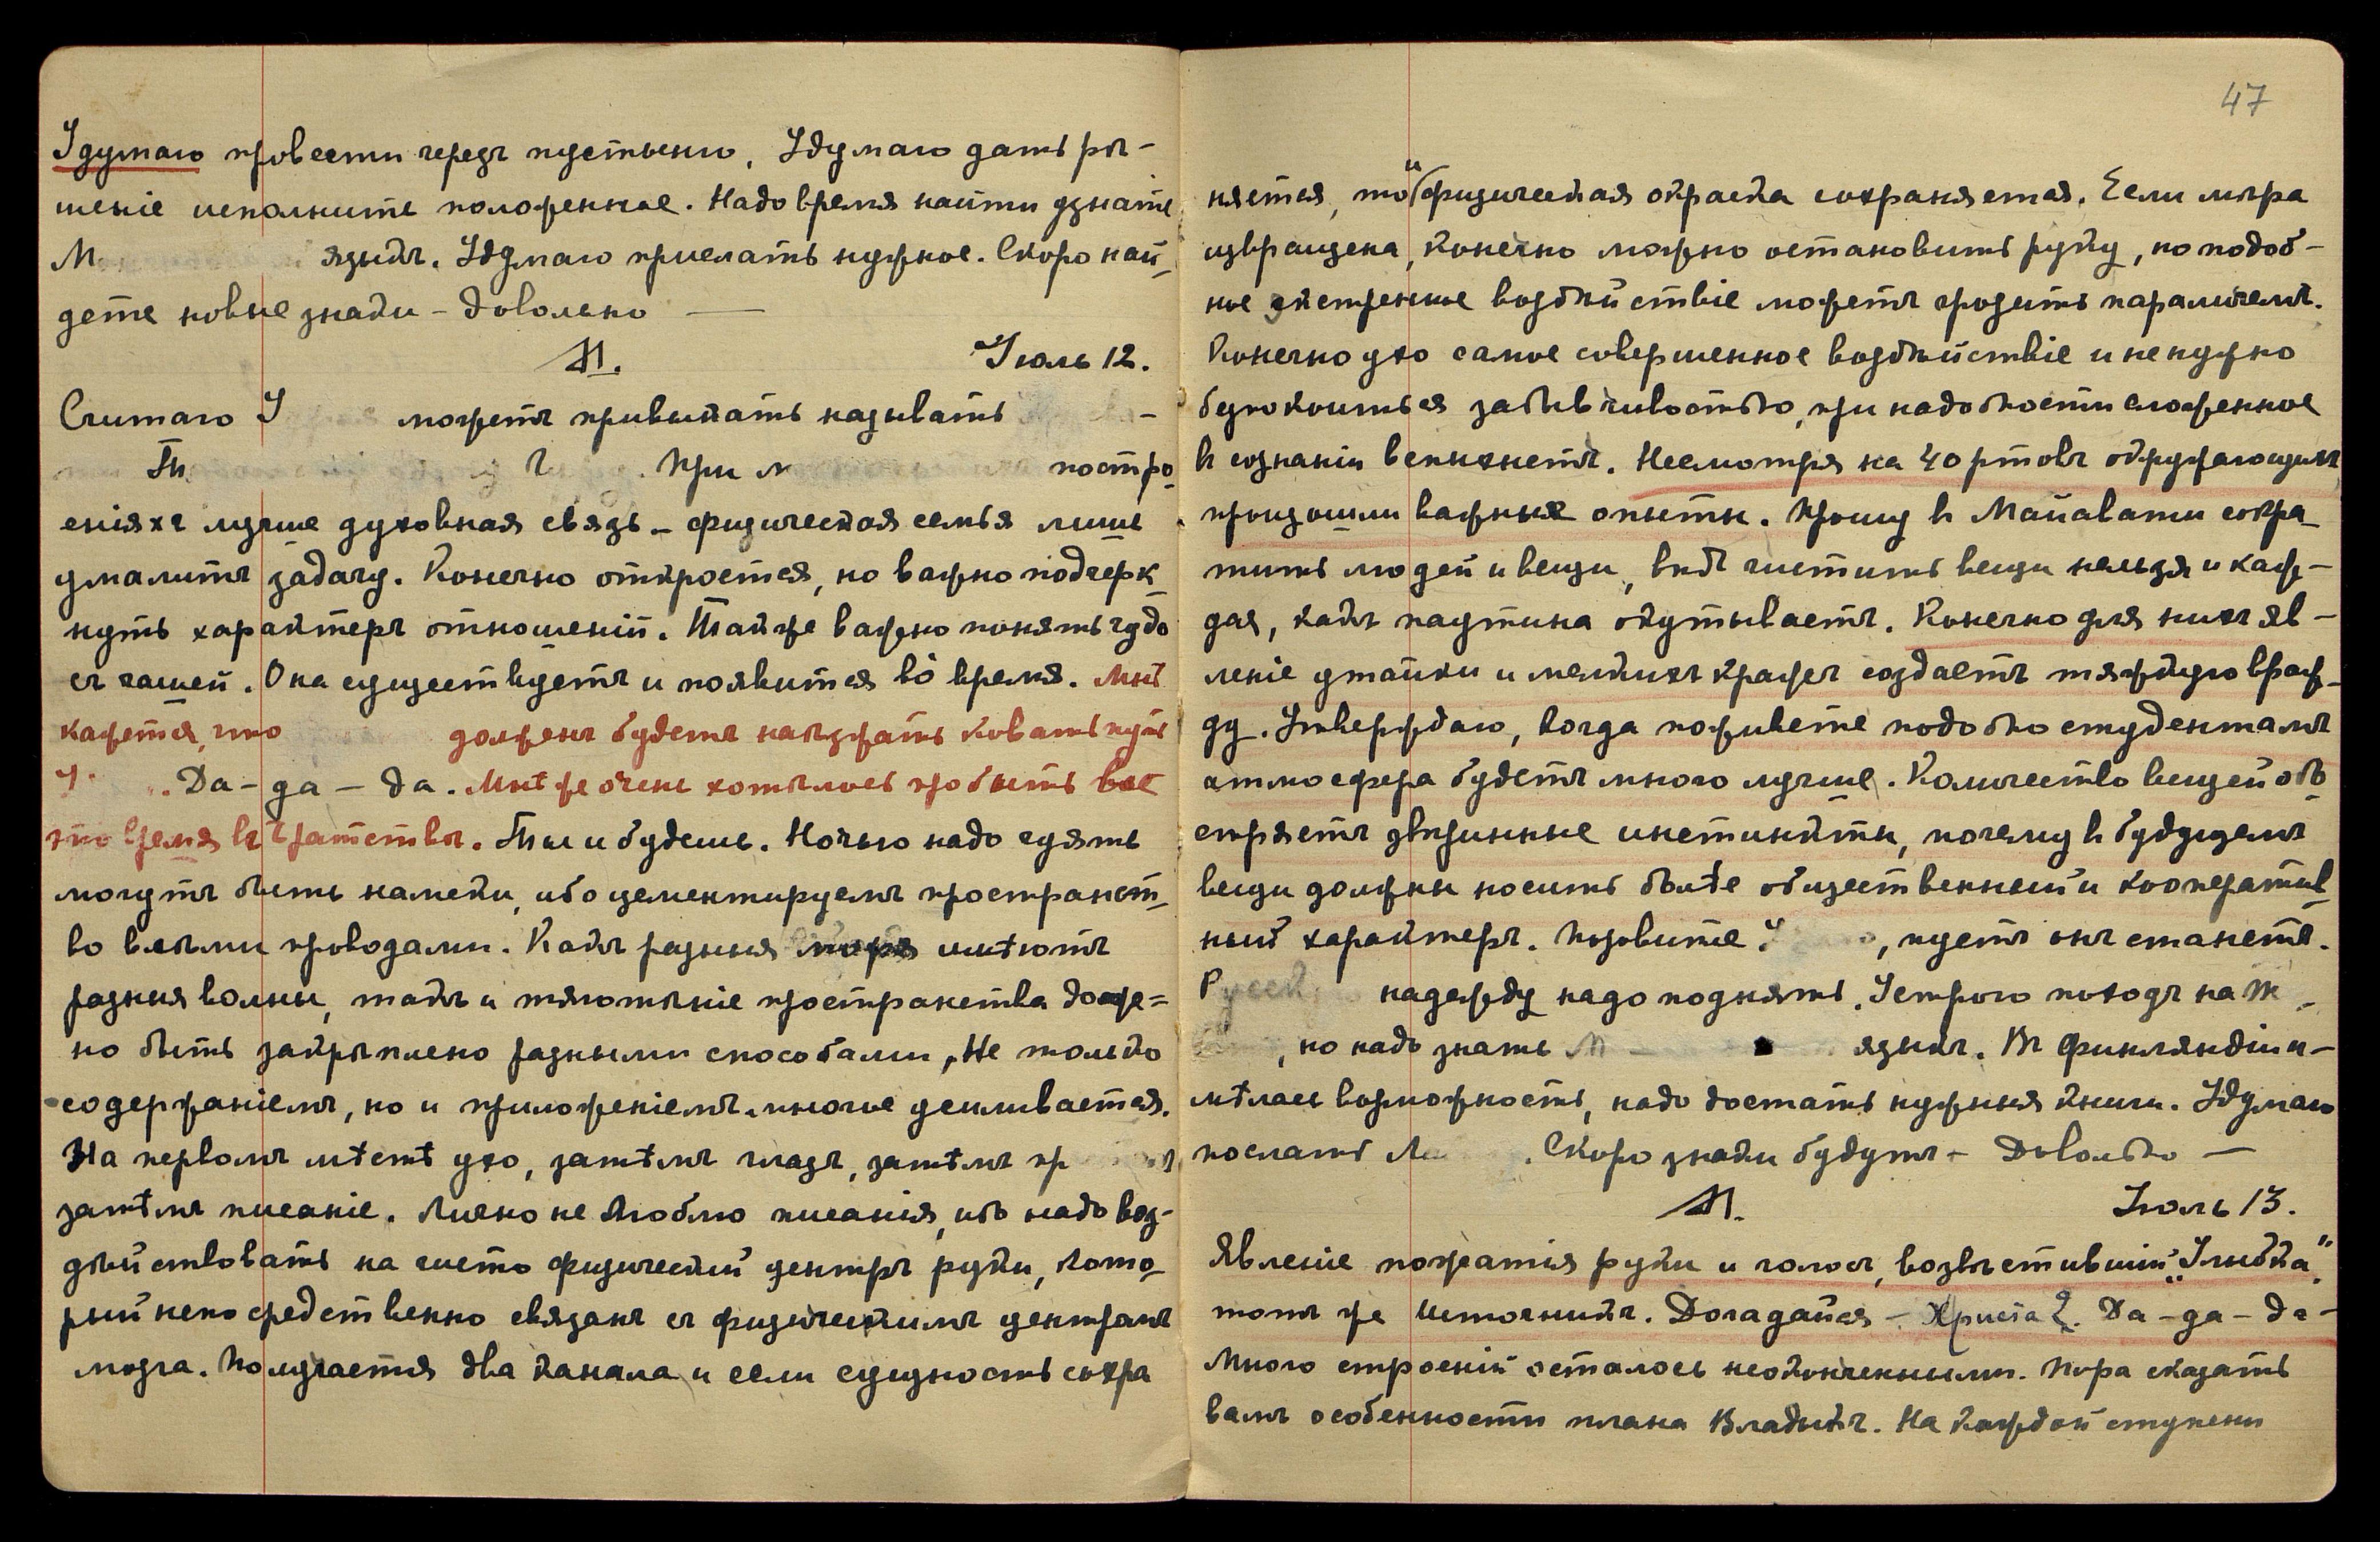 Удумаю провести черезъ пустыню, Удумаю дать рѣ-
шеніе исполнить положенное. Надо время найти узнать
М языкъ. Удумаю прислать нужное. Скоро най-
дете новые знаки – Довольно —
М. Іюль 12.
Считаю У можетъ привыкать называть -
При м постро-
еніяхъ лучше духовная связь – физическая семья лишь
умалитъ задачу. Конечно откроется, но важно подчерк-
нуть характеръ отношеній. Также важно понять чудо
съ чашей. Она существуетъ и появится во время. Мнѣ
кажется, что долженъ будетъ наѣзжать ковать путь
У. Да – да – да. Мнѣ же очень хотѣлось пробыть все
это время въ братствѣ. Ты и будешь. Ночью надо чуять
могутъ быть намеки, ибо цементируемъ пространст-
во всѣми проводами. Какъ разныя моря имѣютъ
разныя волны, такъ и тяготѣніе пространства долж=
но быть закрѣплено разными способами, Не только
содержаніемъ, но и приложеніемъ многое усиливается.
На первомъ мѣстѣ ухо, затѣмъ глазъ, затѣмъ пр
затѣмъ писаніе. Лично не люблю писанія, ибо надо воз-
дѣйствовать на чисто физическій центръ руки, кото-
рый непосредственно связанъ съ физическимъ центромъ
мозга. Получается два канала и если сущность сохра
47
няется, то и физическая окраска сохраняется. Если мѣра
извращена, конечно можно остановить руку, но подоб-
ное экстренное воздѣйствіе можетъ грозить параличемъ.
Конечно ухо самое совершенное воздѣйствіе и не нужно
безпокоиться забывчивостью, при надобности сложенное
въ сознаніи вспыхнетъ. Несмотря на 40 ртовъ окружающихъ
произошли важныя опыты. Прошу въ Майавати сокра-
тить людей и вещи, вѣдь чистить вещи нельзя и каж-
дая, какъ паутина окутываетъ. Конечно для нихъ яв-
леніе утайки и мелкихъ кражъ создаетъ тяжкую враж-
ду. Утверждаю, когда поживете подобно студентамъ
атмосфера будетъ много лучше. Количество вещей обо-
стряетъ звѣринные инстинкты, почему въ будущемъ
вещи должны носить болѣе общественный и кооператив-
ный характеръ. Позовите У , пусть онъ станетъ.
Русск надежду надо поднять. Устрою походъ на
, но надо знать М языкъ. Въ Финляндіи и-
мѣлась возможность, надо достать нужныя книги. Удумаю
послать . Скоро знаки будутъ – Довольно —
М. Іюль 13.
Явленіе пожатія руки и голосъ, возвѣстившій „Улыбка"
тотъ же Источникъ. Догадайся – Христа? Да – да – да –
Много строеній осталось неоконченными. Пора сказать
вамъ особенности плана Владыкъ. На каждой ступени